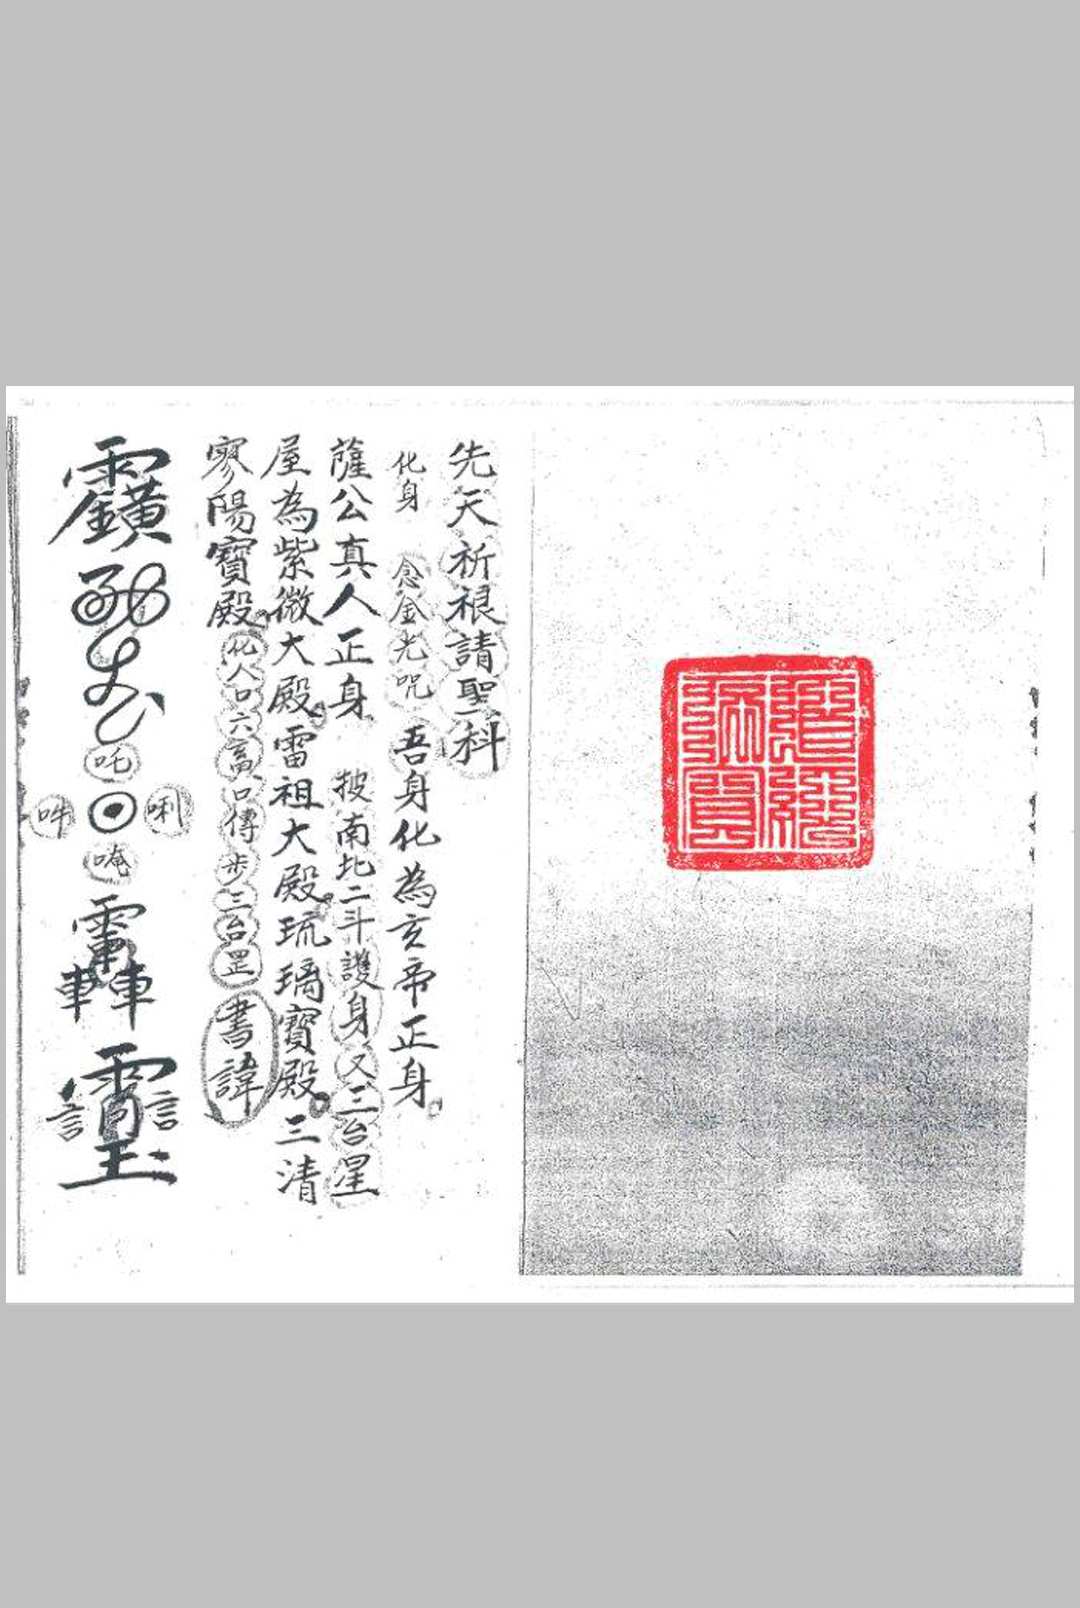 先天祈禳請聖科
化身 念金光咒 吾身化為玄帝正身
薩公真人正身 披南北二斗護身又三台星
屋為紫微大殿雷祖大殿琉璃寶殿三清
寥陽寶殿化人口六畜口傳步三台罡書諱
吒
唎
吽
唵